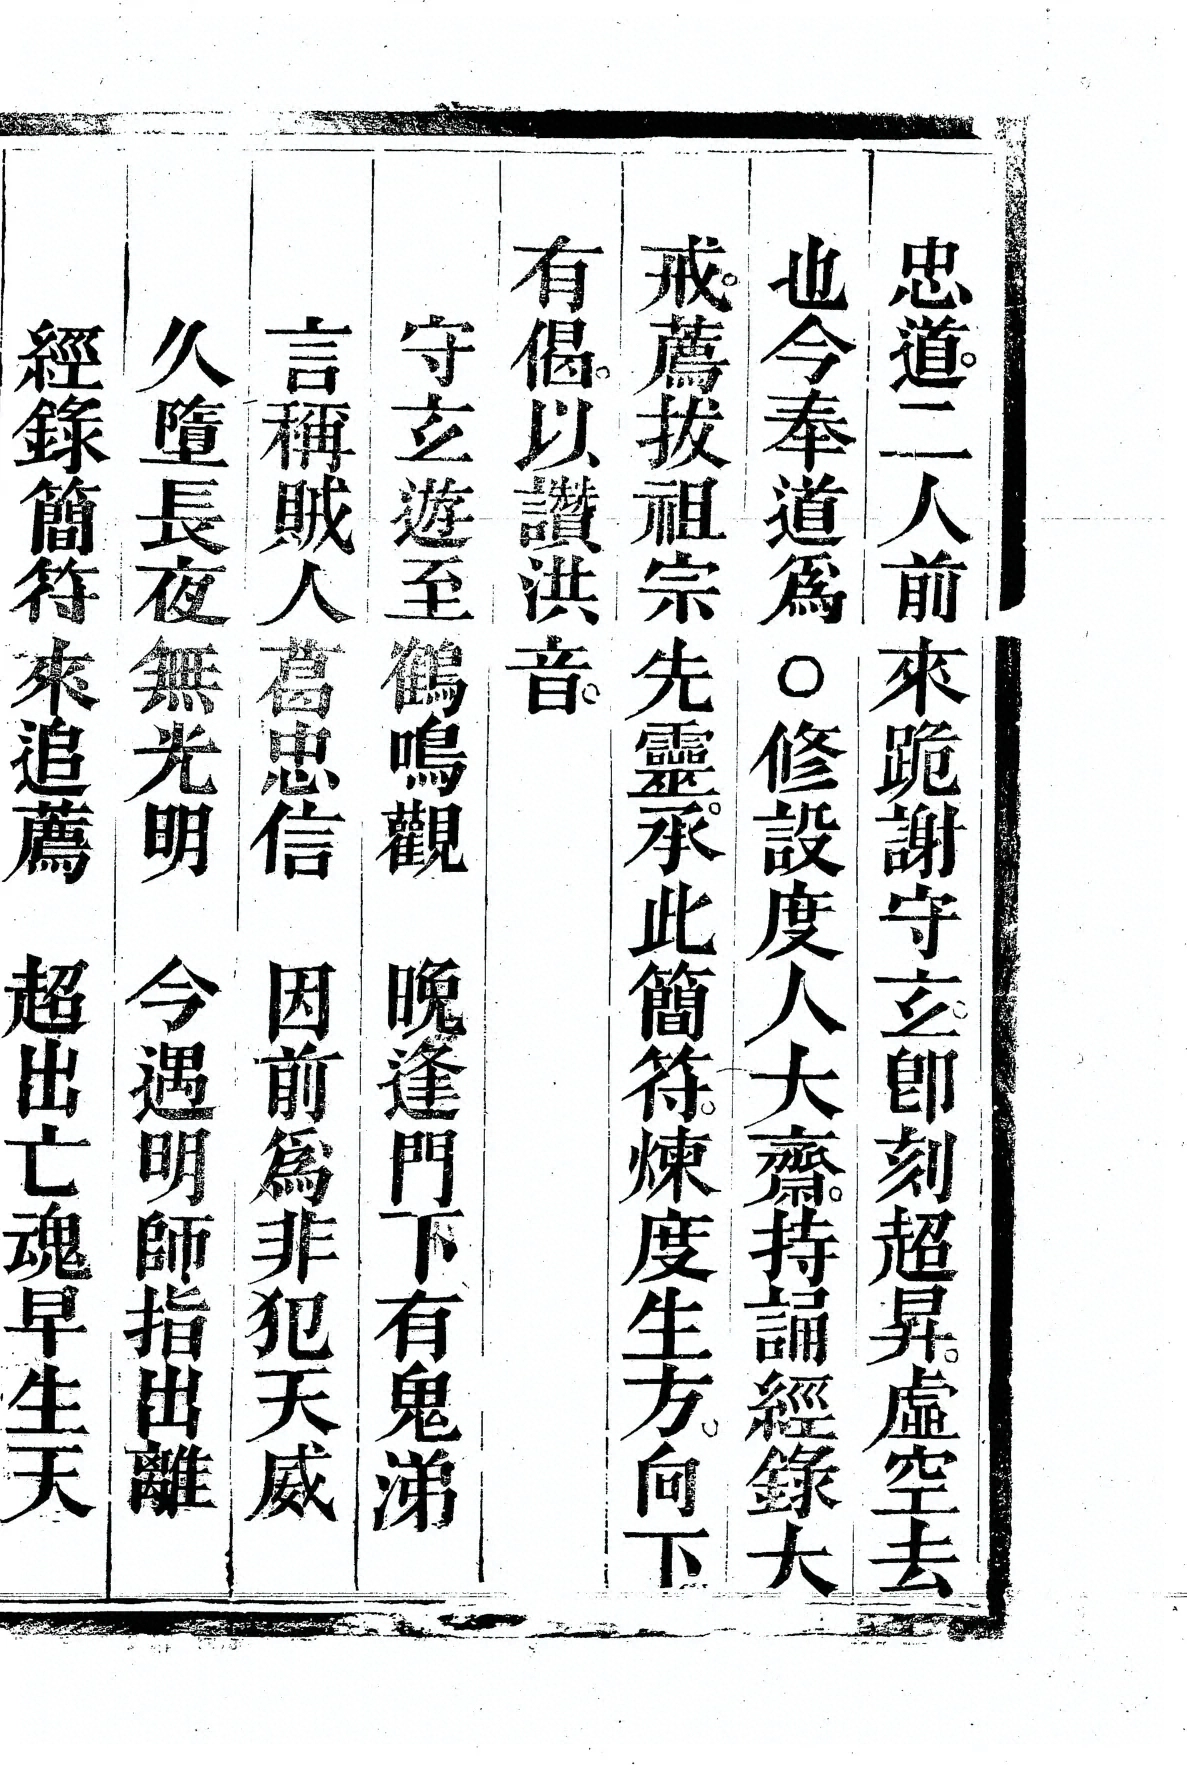 忠道。二人前來跪謝守玄。卽刻超昇。虛空去
也今奉道爲○修設度人大齋。持誦經錄大
戒。薦拔祖宗先靈。承此簡符。煉度生方。向下
有偈。以讚洪音。
守玄遊至鶴鳴觀　晚逢門下有鬼涕
言稱賊人葛忠信　因前爲非犯天威
久墮長夜無光明　今遇明師指出離
經錄簡符來追薦　超出亡魂早生天